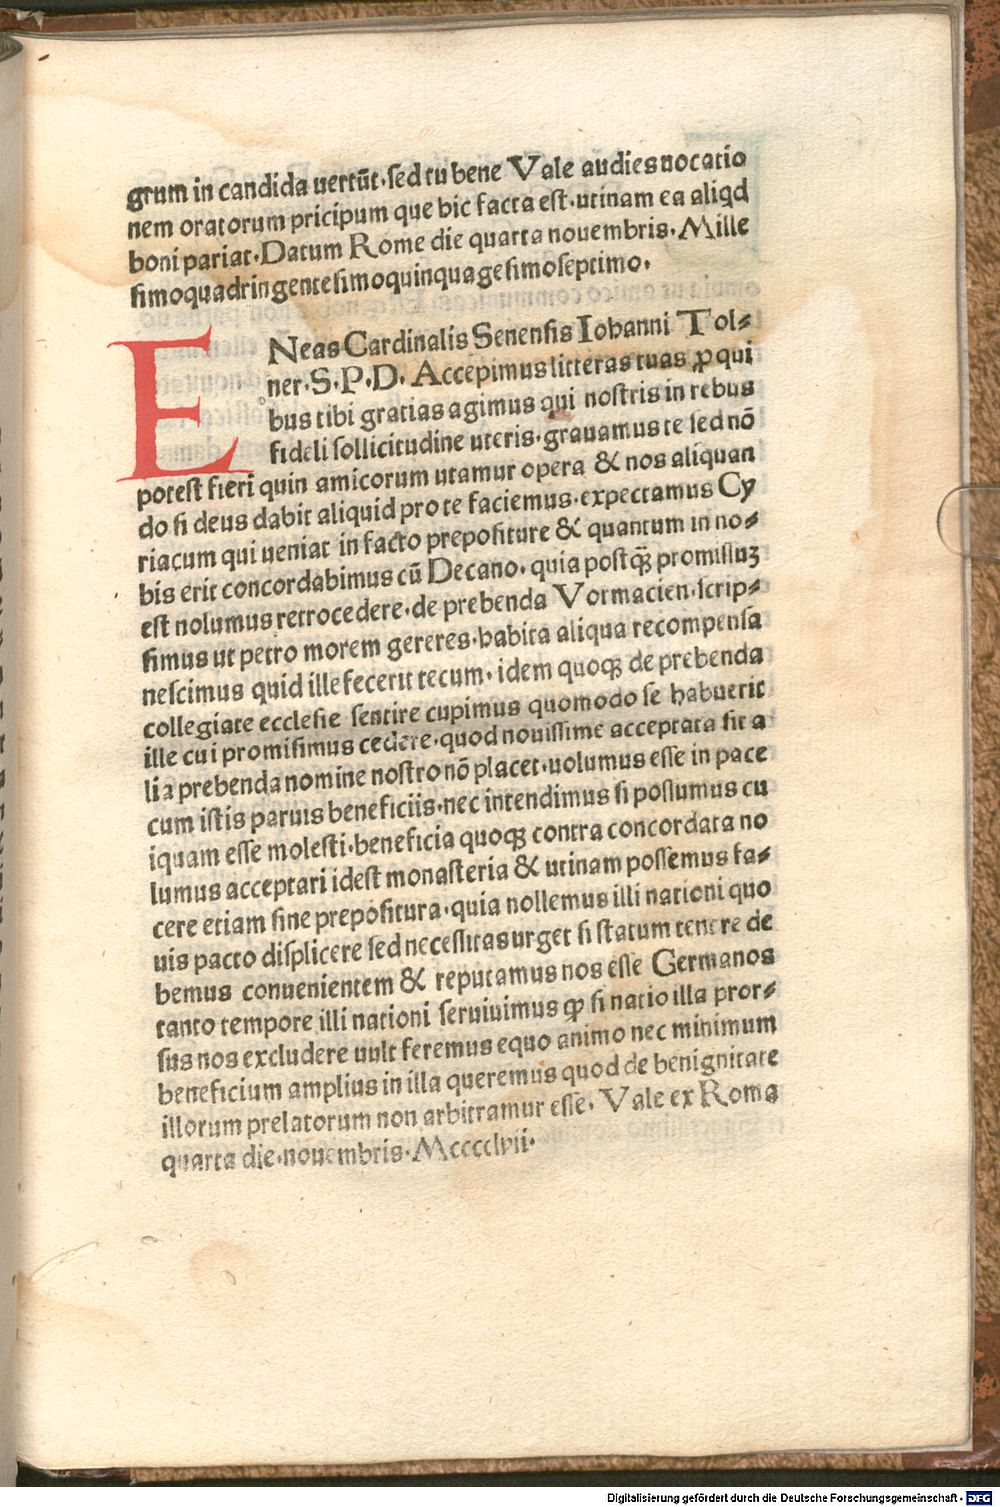 grum in candida uertūt·sed tu bene Vale audies uocatio
nem oratorum pricipum que hic facta est·utinam ea aliqd
boni pariat·Datum Rome die quarta nouembris·Mille
simoquadringentesimoquinquagesimoseptimo·
ENeas Cardinalis Senensis Iohanni Tol⸗
ner·S·P·D·Accepimus litteras tuas ꝓ qui
bus tibi gratias agimus qui nostris in rebus
fideli sollicitudine uteris·grauamus te sed nō
potest fieri quin amicorum utamur opera & nos aliquan
do si deus dabit aliquid pro te faciemus·expectamus Cy
riacum qui ueniat in facto prepositure & quantum in no⸗
bis erit concordabimus cū Decano·quia postqꝫ̄ promissuꝫ
est nolumus retrocedere·de prebenda Vormacien·scrip⸗
simus ut petro morem gereres·habita aliqua recompensa
nescimus quid ille fecerit tecum·idem quoqꝫ de prebenda
collegiate ecclesie sentire cupimus quomodo se habuerit
ille cui promisimus cedere·quod nouissime acceptata sit a
lia prebenda nomine nostro nō placet·uolumus esse in pace
cum istis paruis beneficiis·nec intendimus si possumus cu
iquam esse molesti·beneficia quoqꝫ contra concordata no
lumus acceptari idest monasteria & utinam possemus fa⸗
cere etiam sine prepositura·quia nollemus illi nationi quo
uis pacto displicere sed necessitas urget si statum tenere de
bemus conuenientem & reputamus nos esse Germanos
tanto tempore illi nationi seruiuimus ꝙ si natio illa pror⸗
sus nos excludere uult feremus equo animo nec minimum
beneficium amplius in illa queremus quod de benignitate
illorum prelatorum non arbitramur esse·Vale ex Roma
quarta die·nouembris·Mcccclvii·
Digitalisierung gefördert durch die Deutsche Forschungsgemeinschaft - DFG